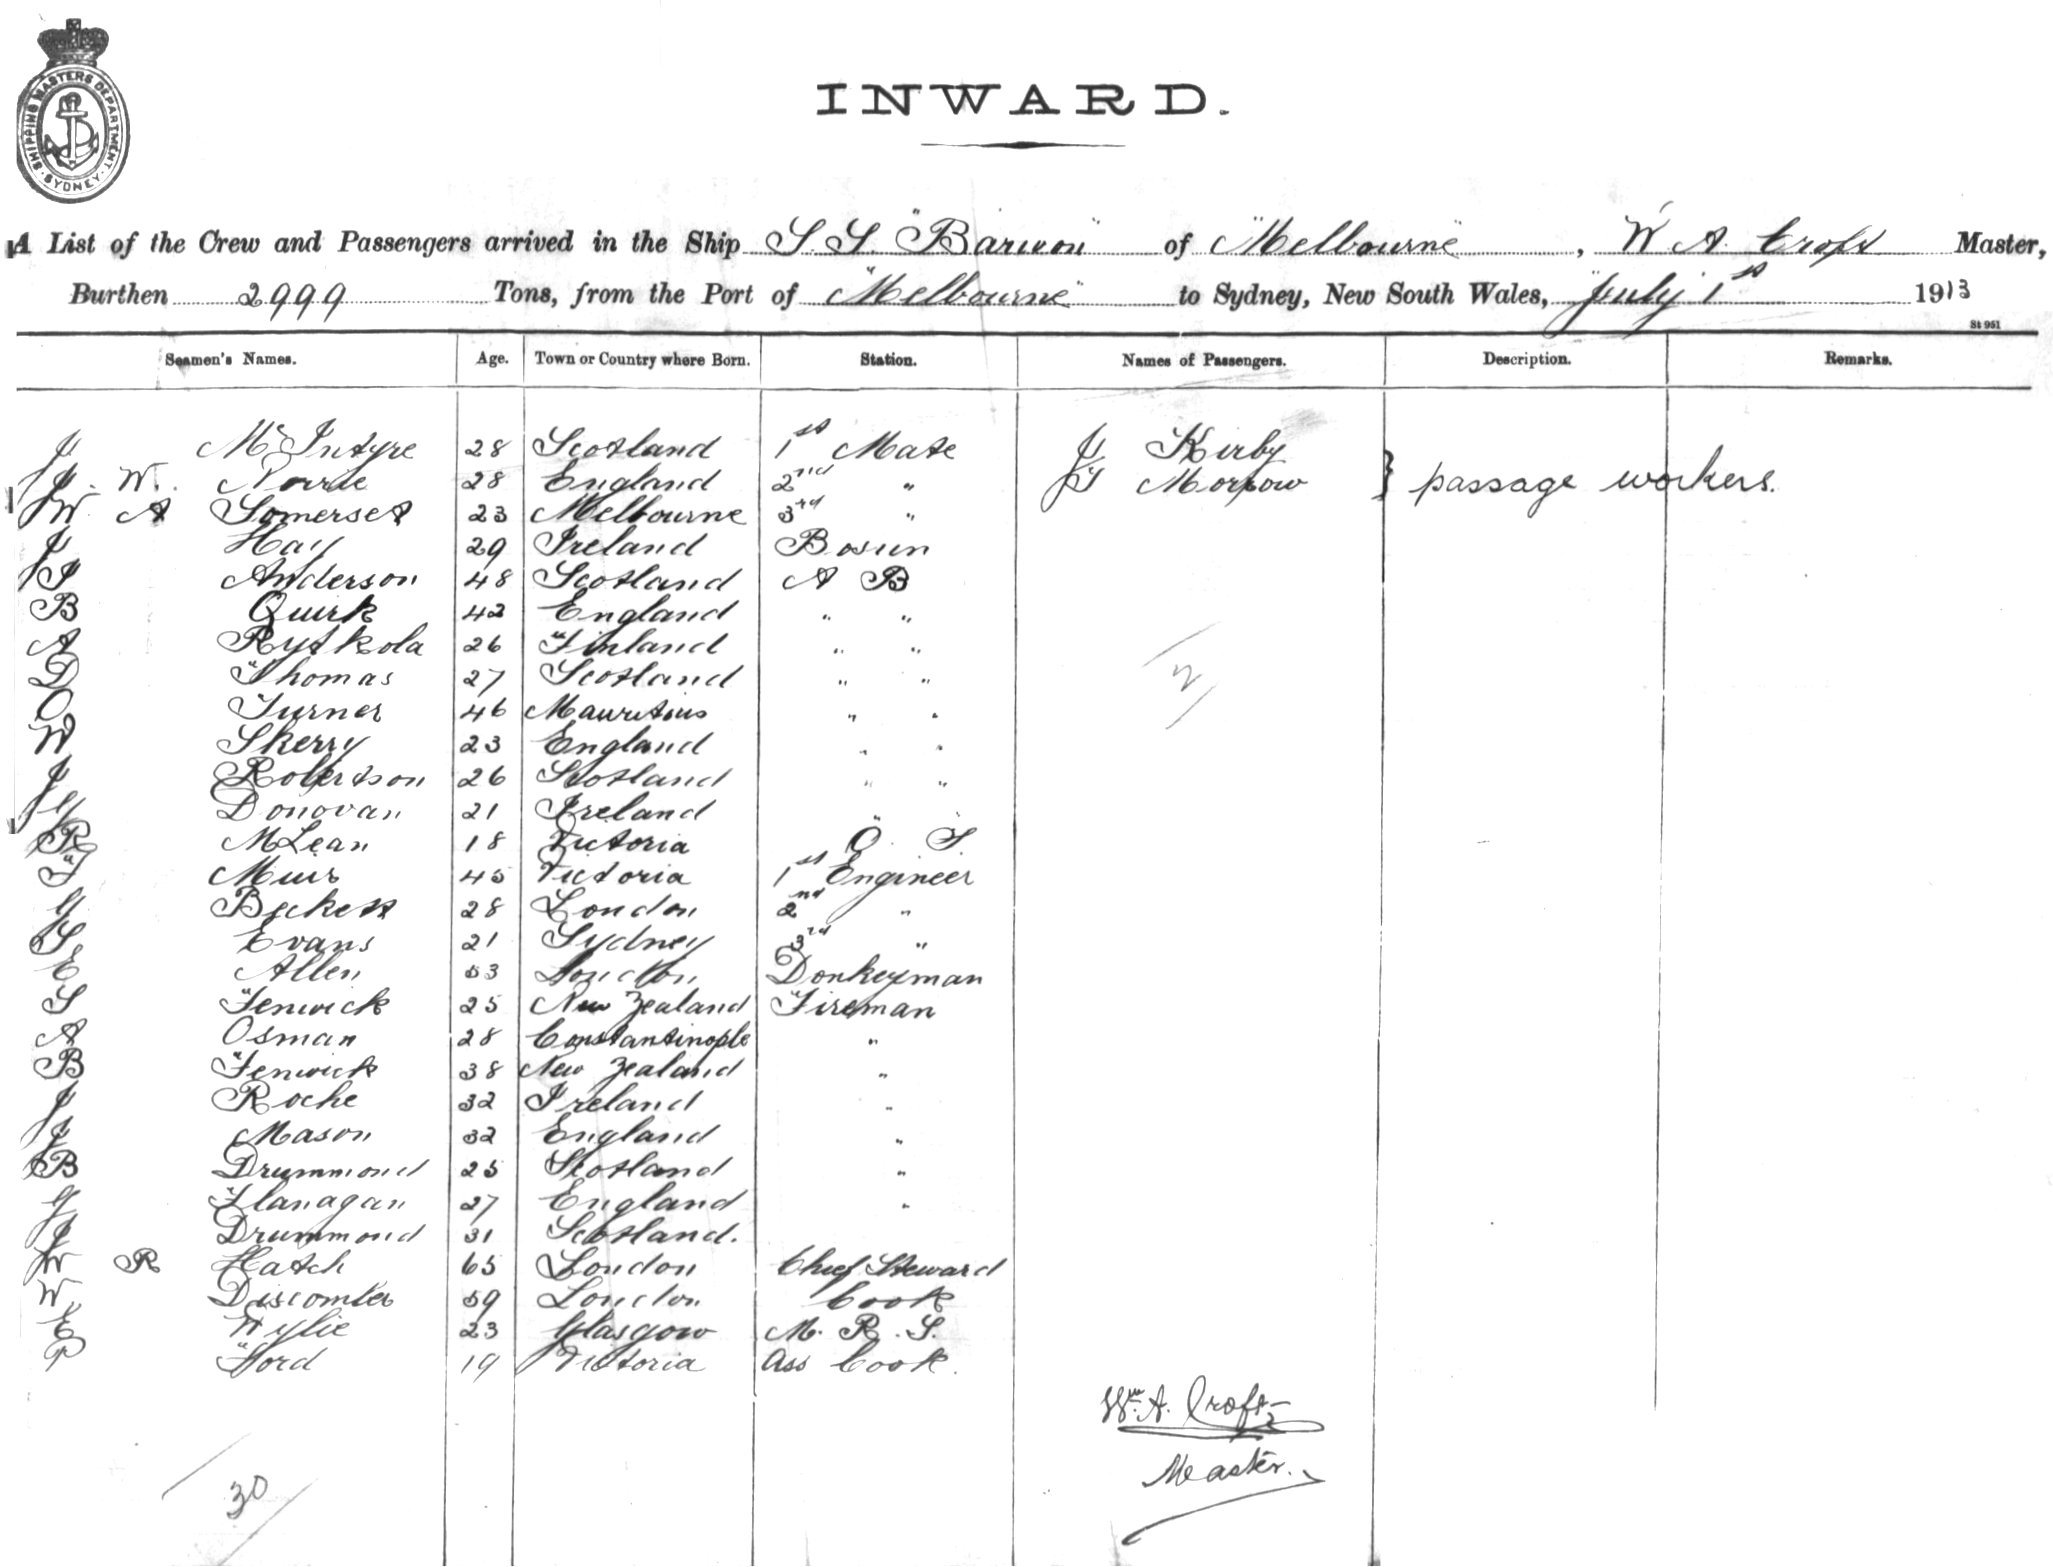 SHIPPING MASTERS DEPARTMENT · SYDNEY ·
INWARD.
A List of the Crew and Passengers arrived in the Ship S.S. "Barwon" of "Melbourne", W A. Croft Master,
Burthen 2999 Tons, from the Port of "Melbourne" to Sydney, New South Wales, July 1st 1913
St 951
Seamen's Names. Age. Town or Country where Born. Station. Names of Passengers. Description. Remarks.
J McIntyre 28 Scotland 1st Mate J Kirby
J. W. 28 England 2nd " J Morrow } passage workers.
W A Somerset 23 Melbourne 3rd "
J Hay 29 Ireland Bosun
J Anderson 48 Scotland A B
B Quirk 42 England " "
A Rytkola 26 Finland " "
D Thomas 27 Scotland " "
O Turner 46 Mauritius " "
W Skerry 23 England " "
J Robertson 26 Scotland " "
J Donovan 21 Ireland " "
R McLean 18 Victoria O S
T Muir 45 Victoria 1st Engineer
G Beckett 28 London 2nd "
S. Evans 21 Sydney 3rd "
E Allen 53 London Donkeyman
S Fenwick 25 New Zealand Fireman
A Osman 28 Constantinople "
B Fenwick 38 New Zealand "
J Roche 32 Ireland "
J Mason 32 England "
B Drummond 25 Scotland "
G Flanagan 27 England "
J Drummond 31 Scotland.
W R Hatch 65 London Chief Steward
W. Discombe 59 London Cook
E Wylie 23 Glasgow M. R. S.
P Ford 19 Victoria Ass Cook.
2
Wm. A. Croft
Master.
30